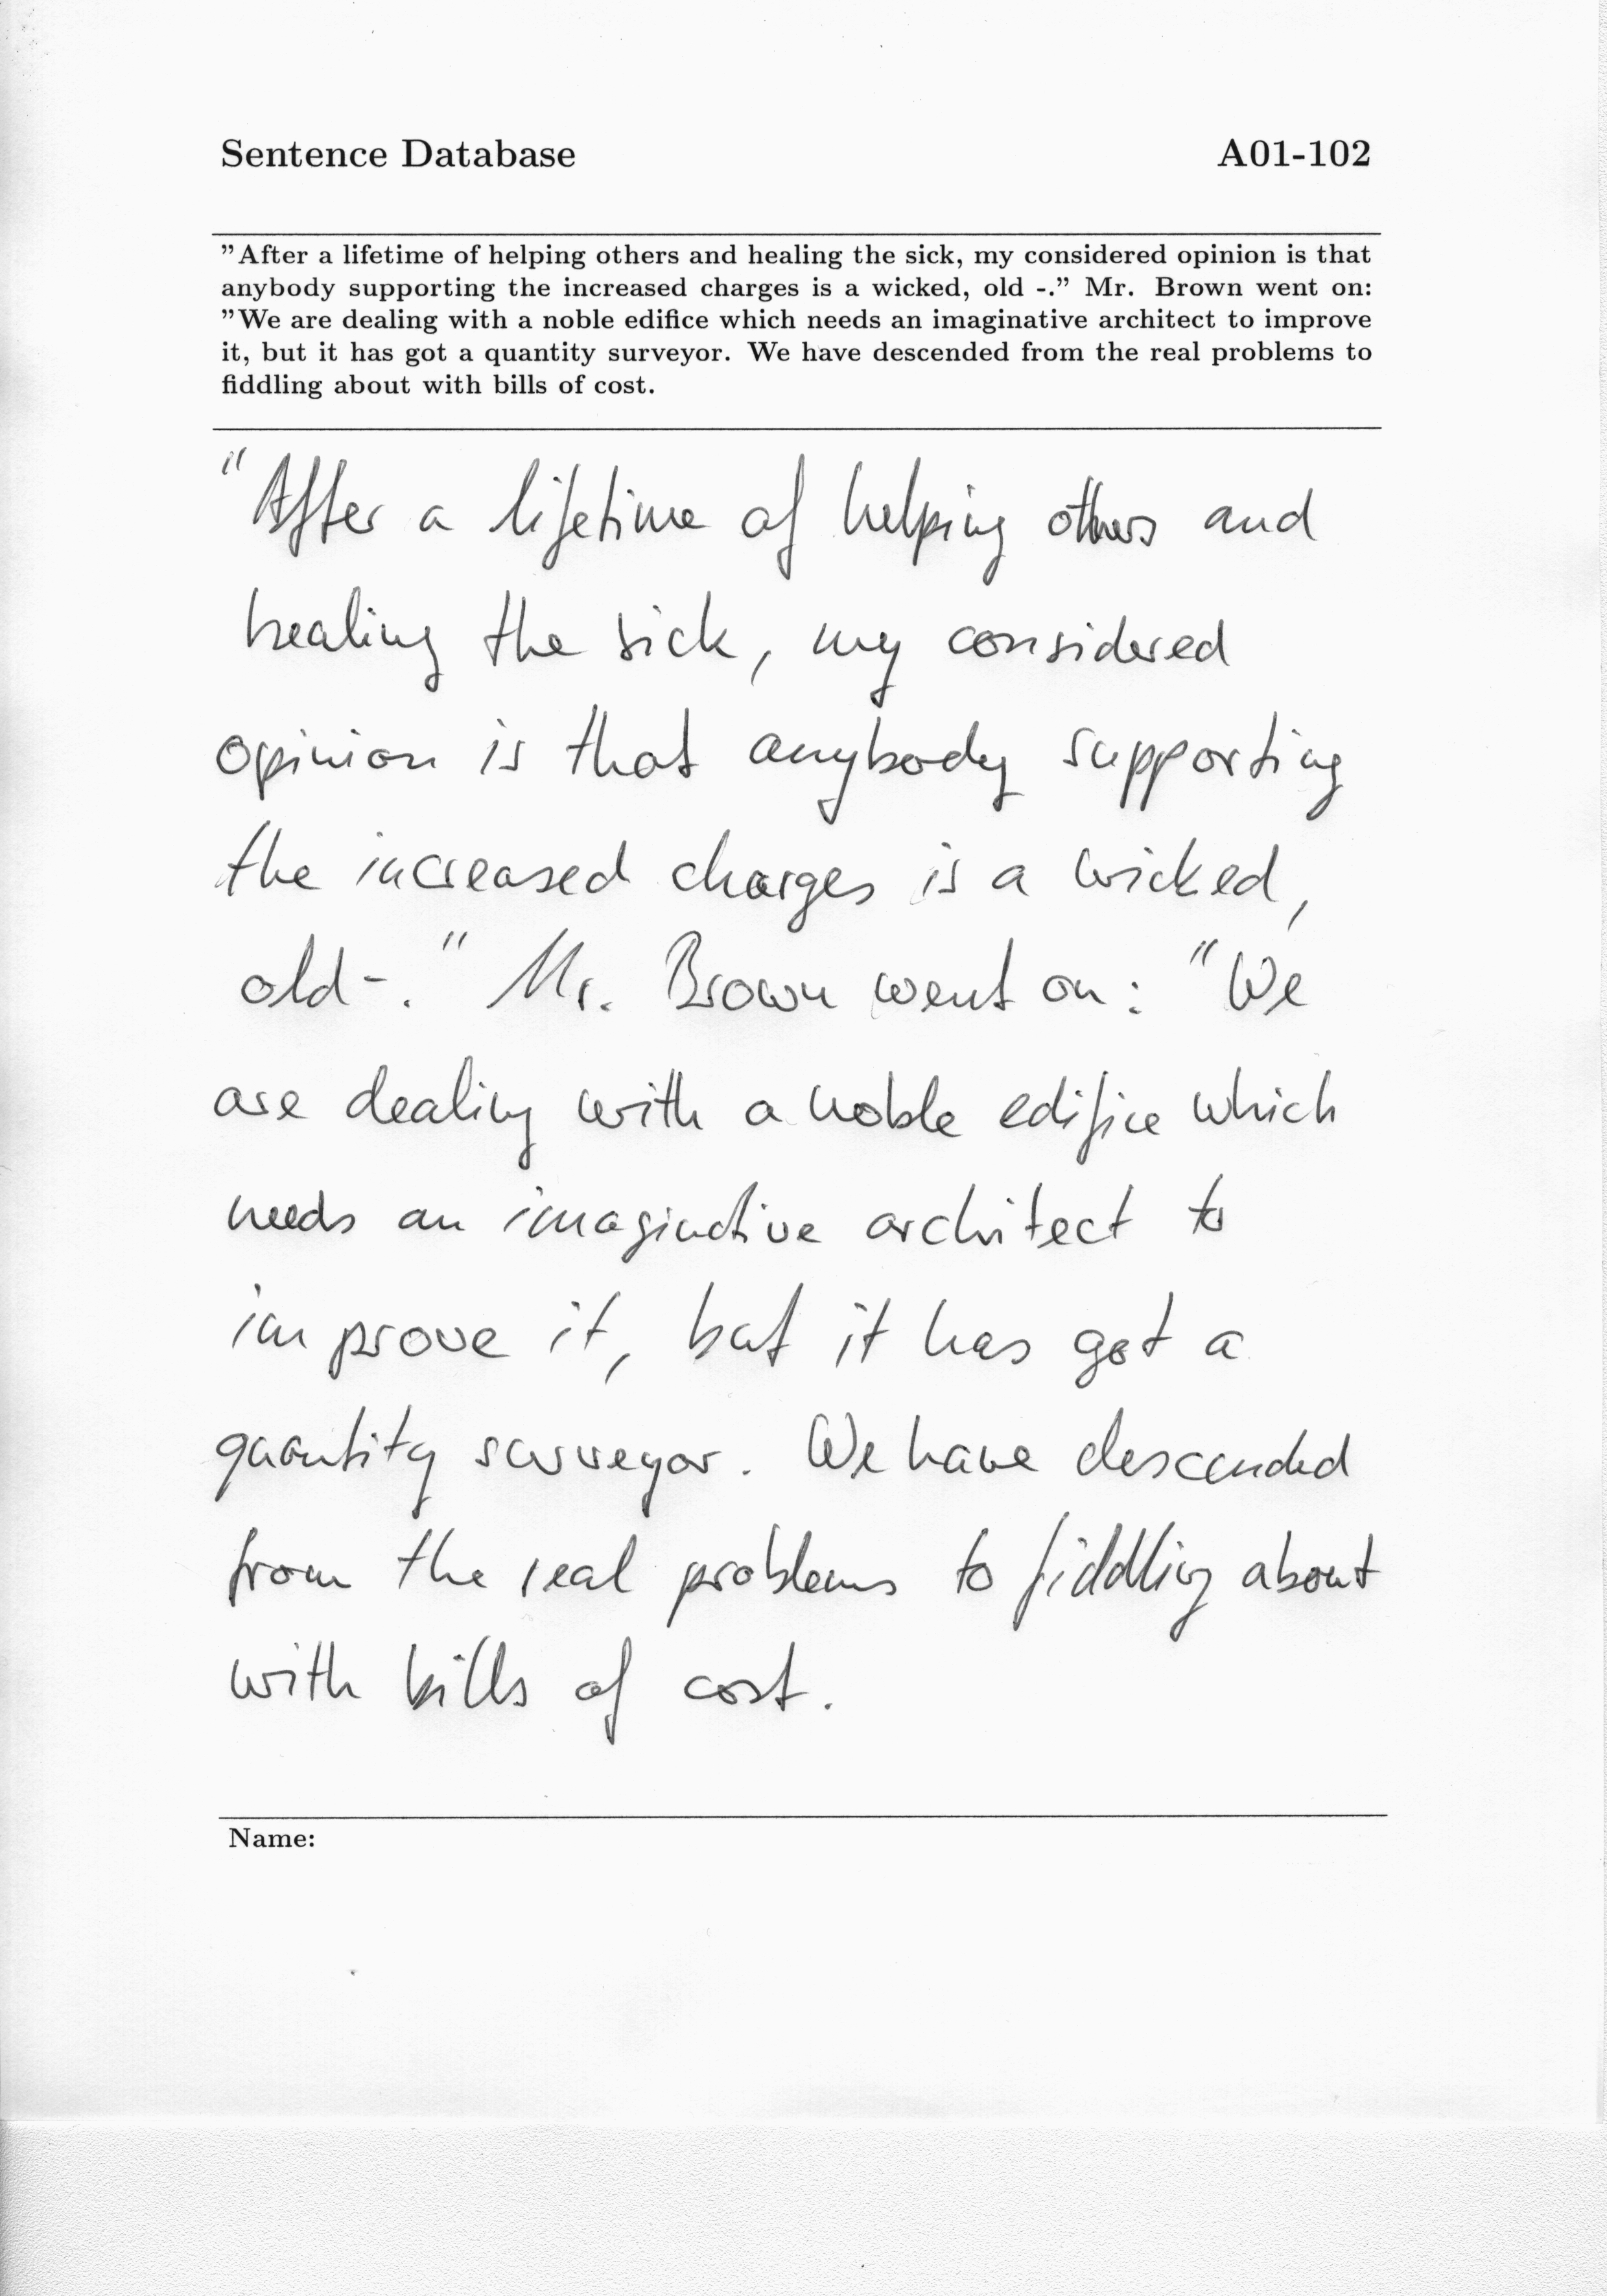 Sentence Database A01-102
"After a lifetime of helping others and healing the sick, my considered opinion is that
anybody supporting the increased charges is a wicked, old -." Mr. Brown went on:
"We are dealing with a noble edifice which needs an imaginative architect to improve
it, but it has got a quantity surveyor. We have descended from the real problems to
fiddling about with bills of cost.
"After a lifetime of helping others and
healing the sick, my considered
opinion is that anybody supporting
the increased charges is a wicked,
old-." Mr. Brown went on: "We
are dealing with a noble edifice which
needs an imaginative architect to
improve it, but it has got a
quantity surveyor. We have descended
from the real problems to fiddling about
with bills of cost.
Name: